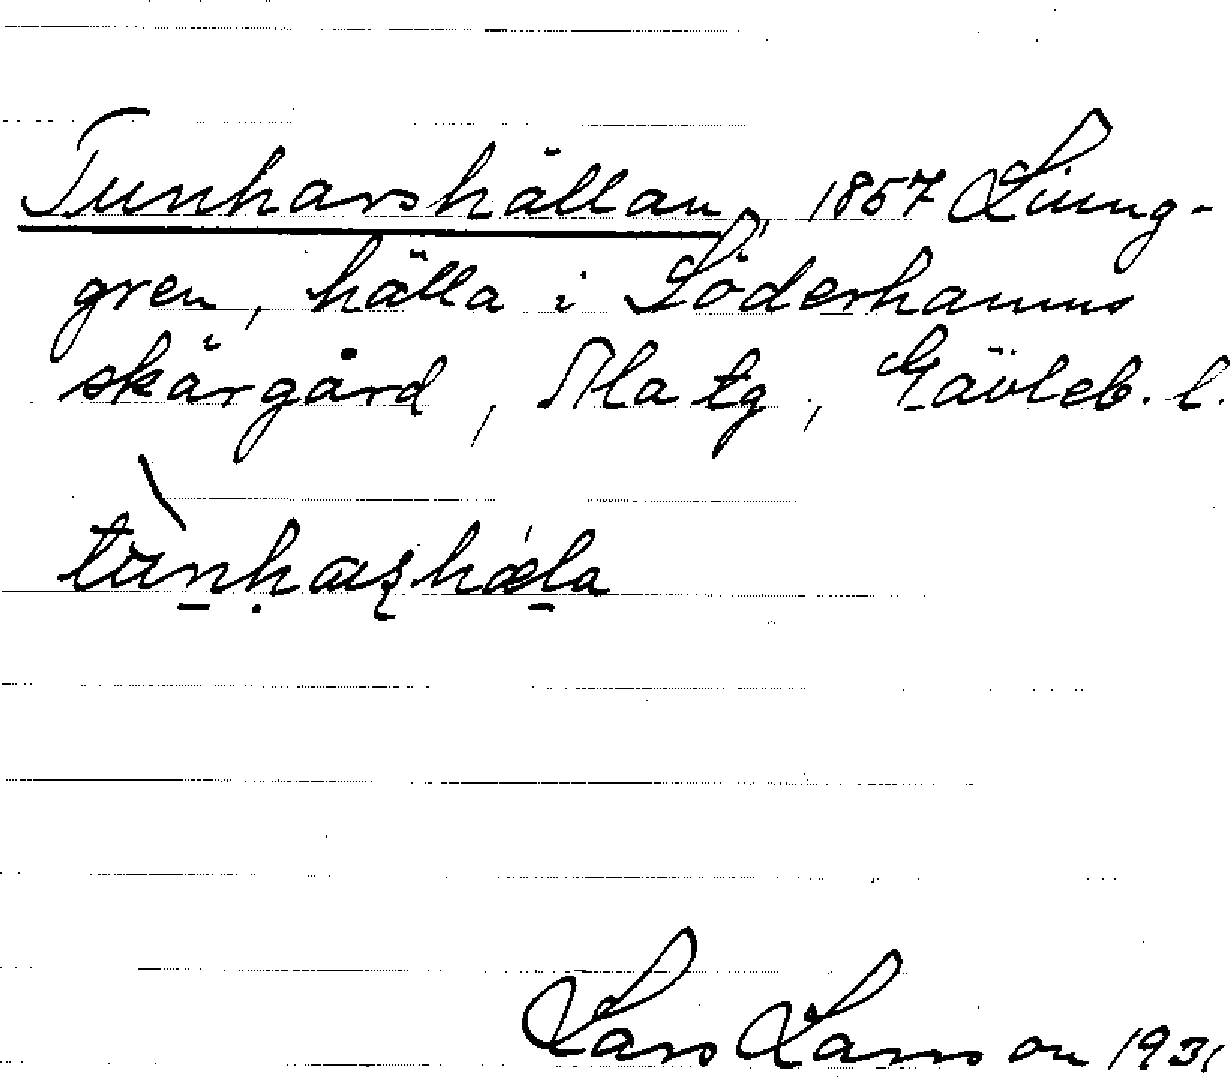 Tunharshällan, 1857 Ljung-
gren, hälla i Söderhamns
skärgård, Ala tg, Gävleb. l.
tùnharshǽla
Lars Larsson 1931